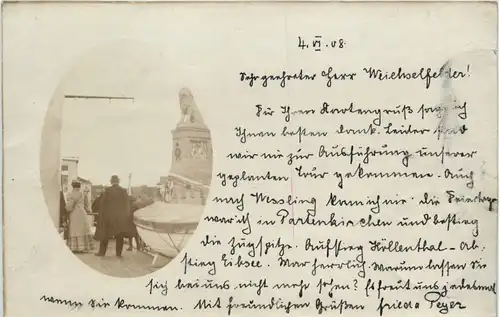 4. VI. 08.
Sehr geehrter Herr Weichselfelder!
Für Ihren Kartengruß sage ich
Ihnen besten Dank. Leider sind
wir nie zur Ausführung unserer
geplanten Tour gekommen. Auch
nach Wessling kam ich nie. die Feiertage
war ich in Partenkirchen und bestieg
die Zugspitze. Aufstieg Höllenthal - Ab-
stieg Eibsee. War herrlich. Warum lassen Sie
sich bei uns nicht mehr sehen? Es freut uns jedesmal
wenn Sie kommen. Mit freundlichen Grüßen Frieda Peyer